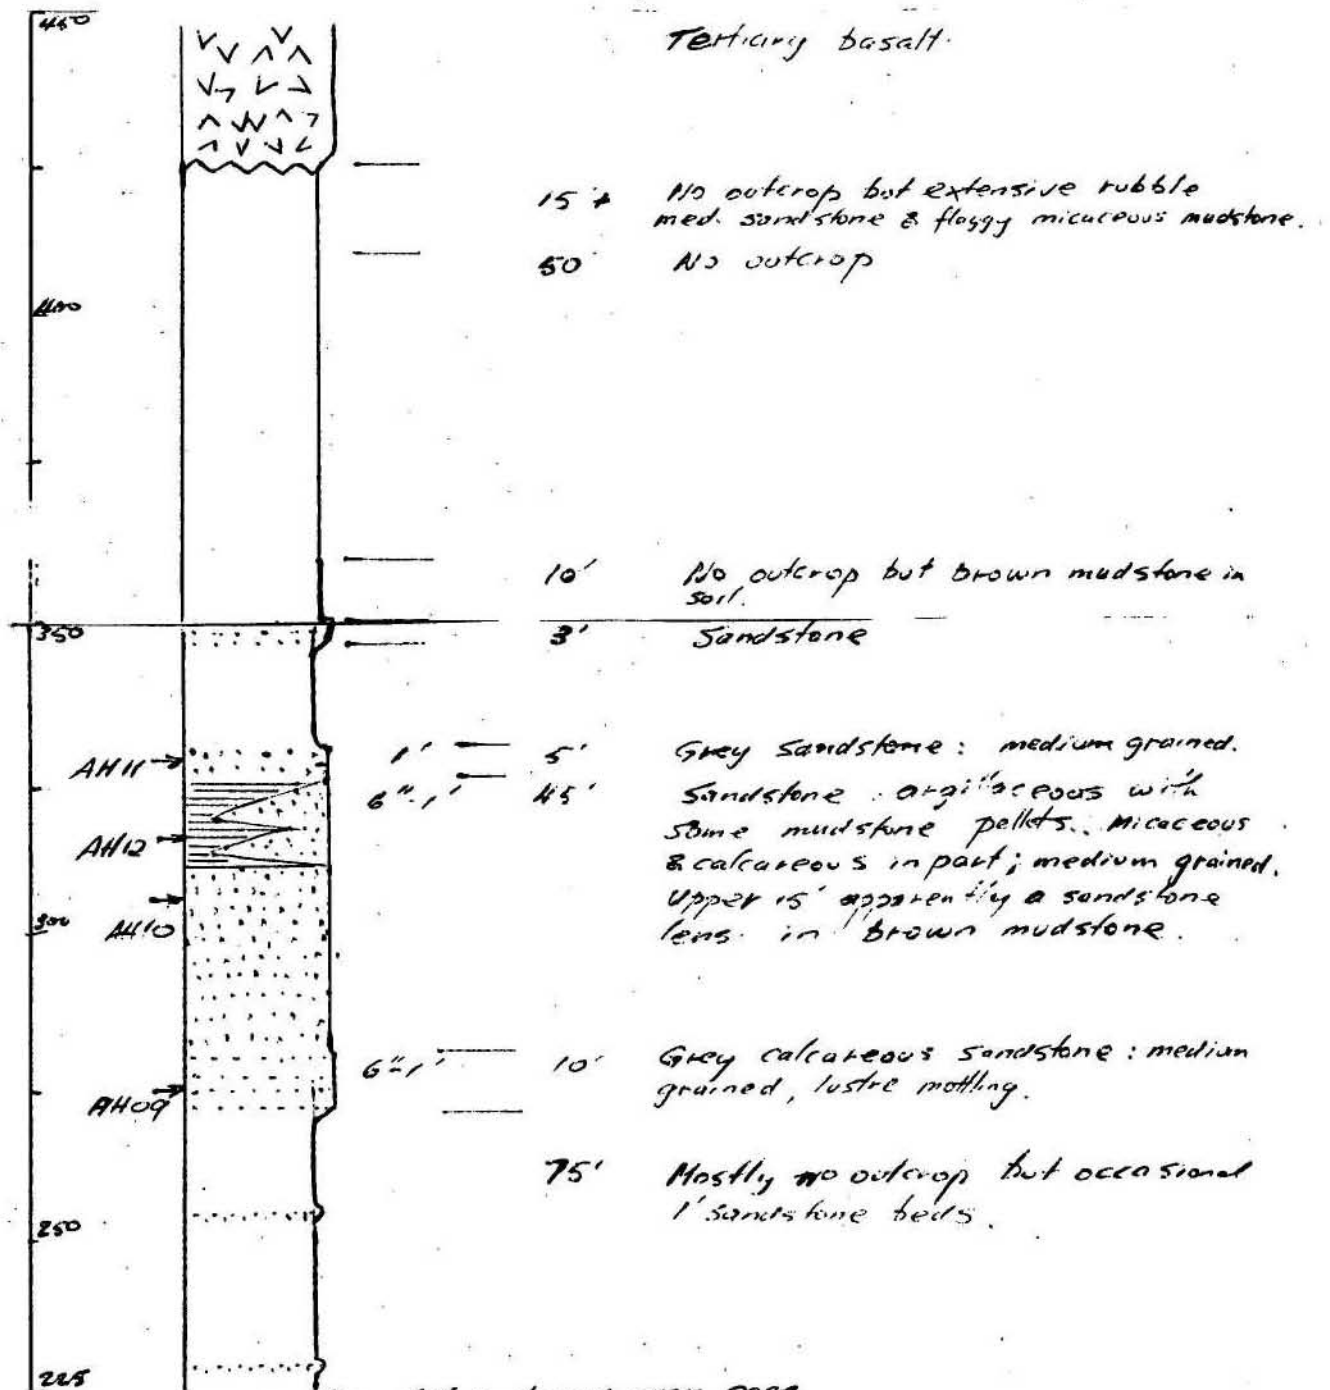 450
Tertiary basalt.
15'+ No outcrop but extensive rubble
med. sandstone & flaggy micaceous mudstone.
50' No outcrop
400
10' No outcrop but brown mudstone in
soil.
350
3' Sandstone
AH11
1' 5' Grey Sandstone: medium grained.
6"-1' 45' Sandstone: argillaceous with
AH12
some mudstone pellets. Micaceous
& calcareous in part; medium grained.
Upper 15' apparently a sandstone
300
AH10
lens in brown mudstone.
6"-1' 10' Grey calcareous sandstone: medium
grained, lustre mottling.
AH09
75' Mostly no outcrop but occasional
1' sandstone beds.
250
225